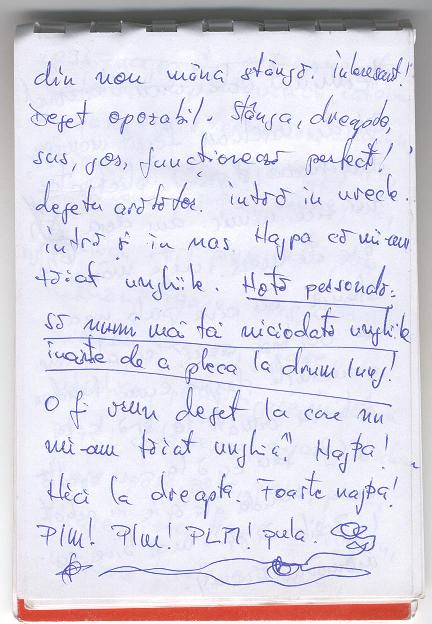 din nou mâna stângă. interesant!
Deget opozabil. Stânga, dreapta,
sus, jos, funcționează perfect!
degetu arătător. intră în ureche.
intră și in nas. Naşpa că mi-am
tăiat unghiile. Notă personală:
să numi mai tai niciodată unghiile
înainte de a pleca la drum lung!
O fi vreun deget la care nu
mi-am tăiat unghia?! Naşpa!
Nici la dreapta. Foarte naşpa!
PLM! PLM! PLM! pula.